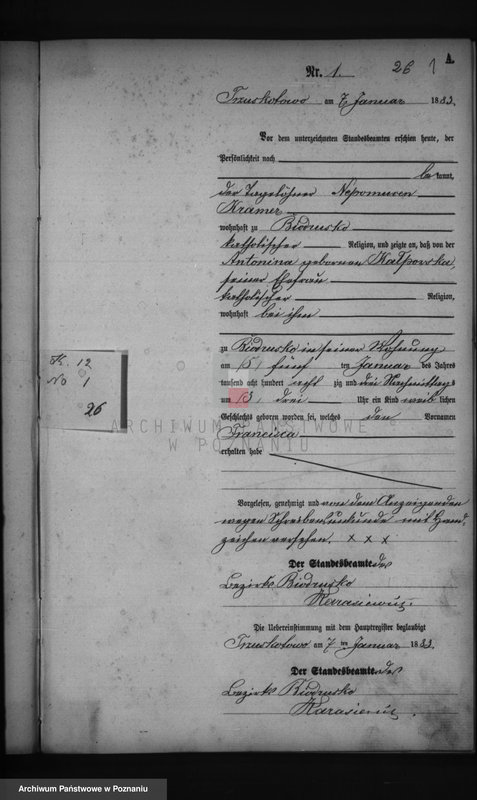 A.
Nr. 1. 26 1
Truskotowo am 7. Januar 1883.
Vor dem unterzeichneten Standesbeamten erschien heute, der
Persönlichkeit nach
be kannt,
der Tagelöhner Nepomucen
Kramer
wohnhaft zu Biedrusko
katholischer Religion, und zeigte an, daß von der
Antonina geborenen
seiner Ehefrau
katholischer Religion,
wohnhaft bei ihm
zu Biedrusko in seiner Wohnung
am (5) fünf ten Januar des Jahres
tausend acht hundert acht zig und drei Nachmittags
um (3) drei Uhr ein Kind weib lichen
Geschlechts geboren worden sei, welches den Vornamen
Francisca
erhalten habe
K. 12
No 1
26
ARCHIWUM PAŃSTWOWE
W POZNANIU
Vorgelesen, genehmigt und von dem Anzeigenden
wegen Schreibensunkunde mit Hand-
zeichen versehen. x x x
Der Standesbeamte des
Bezirks Biedrusko
Karasiewicz.
Die Uebereinstimmung mit dem Hauptregister beglaubigt
Truskotowo am 7 ten Januar 1883.
Der Standesbeamte des
Bezirks Biedrusko
Karasiewicz.
Archiwum Państwowe w Poznaniu